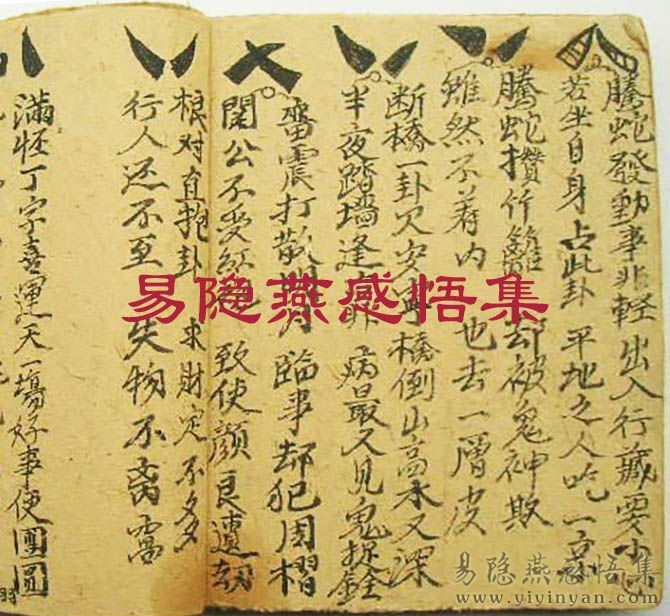 騰蛇發動事非輕出入行藏要小
若坐自身占此卦 平地之人吃一
騰蛇攢竹籬 却被鬼神欺
雖然不着肉 也去一層皮
断橋一卦欠安寧橋倒山高水又深
半夜踏墻逢 病最又見鬼捉
雷震打散 臨事却犯周摺
関公不受 致使顔良遺刼
根对直抱卦 求財定不多
行人还不至 失物不离窩
滿怪丁字喜運天一場好事便團圓
易隐燕感悟集
易隐燕感悟集
www.yiyinyan.com